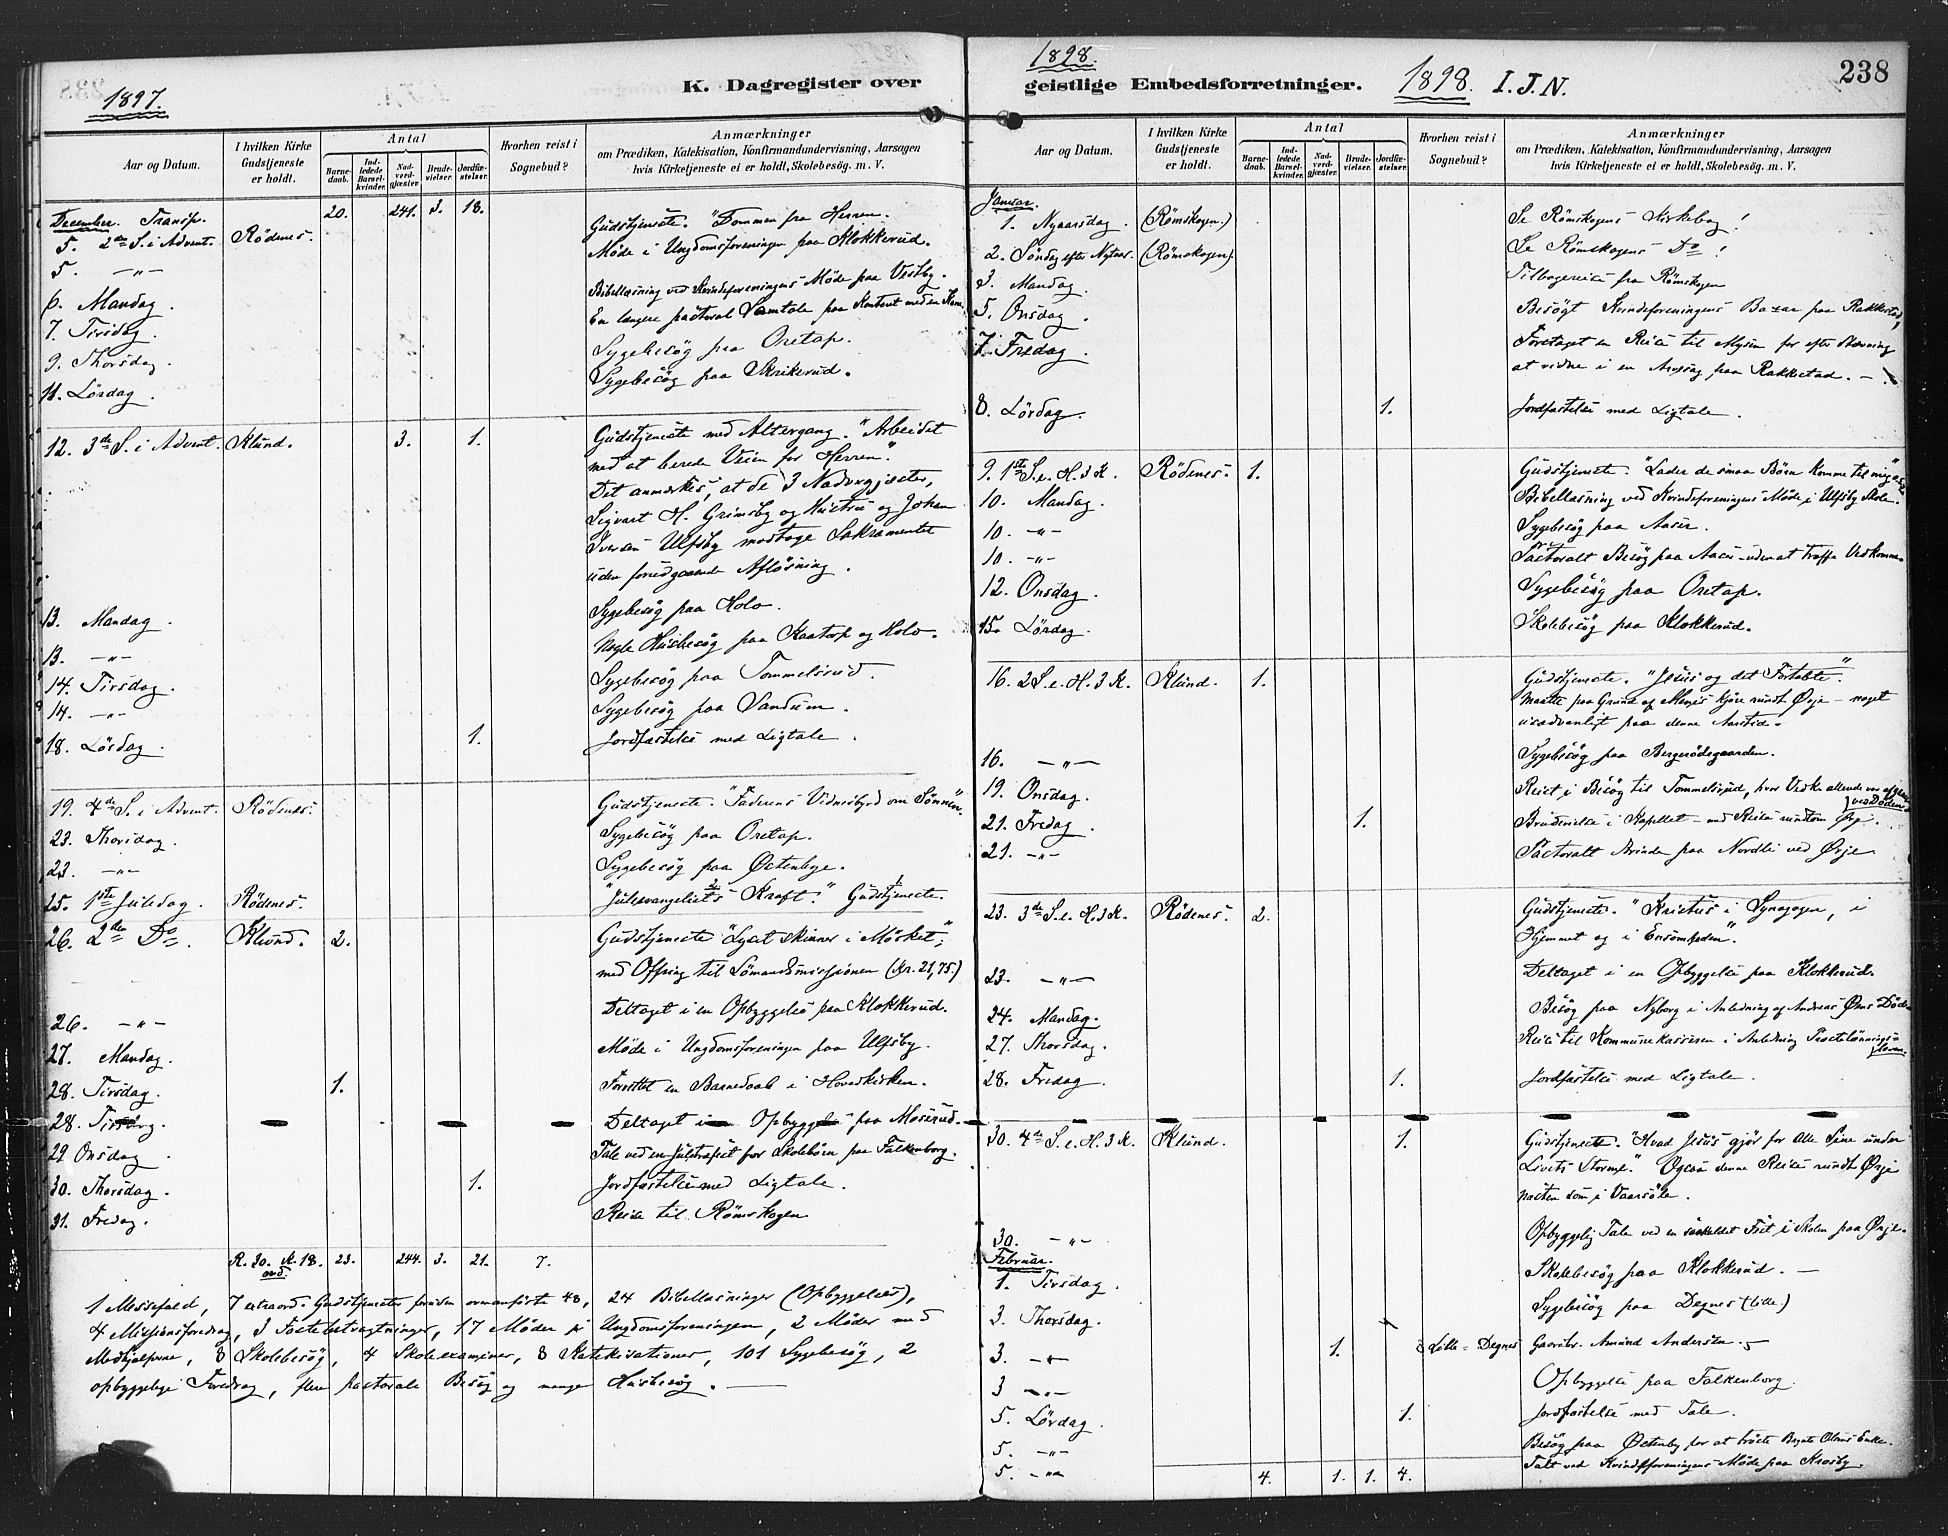 1897.
K. Dagregister over
Aar og Datum.
I hvilken Kirke Gudstjeneste er holdt.
Antal
Barne-daab.
Ind-ledede Barsel-kvinder.
Nad-verd-gjæster.
Brude-vielser.
Jordfæ-stelser.
Hvorhen reist i Sognebud?
Anmærkninger
om Prædiken, Katekisation, Konfirmandundervisning, Aarsagen
hvis Kirketjeneste ei er holdt, Skolebesøg. m. V.
December. Transp. 20. 241. 3. 18.
5. 2den S. i Advent. Rödenes. Gudstjeneste. "Dommen fra Herren.
5. -"- Møde i Ungdomsforeningen paa Klokkerud.
6. Mandag. Bibellæsning ved Kvindeforeningens Møde paa Vestby.
7. Tirsdag. En længere pastoral Samtale paa Kontoret med en
9. Thorsdag. Sygebesög paa Oretap.
11. Lördag. Sygebesög paa Skrikerud.
12. 3de S. i Advent. Klund. 3. 1. Gudstjeneste med Altergang. "Arbeidet
med at berede Veien for Herren".
Det anmærkes, at de 3 Nadvergjæster,
Sigvart H. Grimsby og Hustru og Johan
Iversen Ulfsby modtoge Sakramentet
uden forudgaaende Aflösning.
13. Mandag. Sygebesög paa Holo.
13. -"- Nogle Husbesög paa Kaatorp og Holo.
14. Tirsdag. Sygebesög paa Tommelsrud.
14. -"- Sygebesög paa Sandum.
18. Lördag. 1. Jordfæstelse med Ligtale.
19. 4de S. i Advent. Rödenes. Gudstjeneste. "Faderens Vidnesbyrd om Sönnen".
23. Thorsdag. Sygebesög paa Oretap.
23. -"- Sygebesög paa Østenbye.
25. 1ste Juledag. Rödenes. "Juleevangeliets Kraft." Gudstjeneste.
26. 2den Do. Klund. 2. Gudstjeneste "Lyset skinner i Mörket",
med Offring til Sömandsmissionen (Kr. 21,75.)
26. -"- Deltaget i en Opbyggelse paa Klokkerud.
27. Mandag. Møde i Ungdomsforeningen paa Ulfsby.
28. Tirsdag. 1. Forrettet en Barnedaab i Hovedkirken.
28. Tirsdag. Deltaget i en Opbyggelse paa Moserud.
29 Onsdag Tale ved en Juletræfest for Skolebörn paa Falkenborg.
30. Thorsdag. 1. Jordfæstelse med Ligtale.
31. Fredag. Reise til Römskogen
R. 30. K. 18. 23. 244. 3. 21. 7.
ord.
1 Messefald, 7 extraord. Gudstjenester foruden ovenanförte 48, 24 Bibellæsninger (Opbyggelser),
4 Missionsforedrag, 3 Fastebetragtninger, 17 Møder i Ungdomsforeningen, 2 Møder med
Medhjælperne, 8 Skolebesög, 4 Skoleexaminer, 8 Katekisationer, 101 Sygebesög, 2
opbyggelige Foredrag, flere pastorale Besög og mange Husbesög.
1898.
geistlige Embedsforretninger.
1898. I. J. N.
238
Aar og Datum.
I hvilken Kirke Gudstjeneste er holdt.
Antal
Barne-daab.
Ind-ledede Barsel-kvinder.
Nad-verd-gjæster.
Brude-vielser.
Jordfæ-stelser.
Hvorhen reist i Sognebud?
Anmærkninger
om Prædiken, Katekisation, Konfirmandundervisning, Aarsagen
hvis Kirketjeneste ei er holdt, Skolebesøg. m. V.
Januar.
1. Nyaarsdag. (Römskogen.) Se Römskogens Kirkebog!
2. Söndag efter Nytaar. (Römskogen). Se Römskogens Do!
3. Mandag. Tilbagereise fra Römskogen
5. Onsdag. Besögt Kvindeforeningens Bazar paa Rakkestad,
7. Fredag. Foretaget en Reise til Mysen for efter Stevning
at vidne i en Arvesag paa Rakkestad. -
8. Lördag. 1. Jordfæstelse med Ligtale.
9. 1ste S. e. H. 3 K. Rödenes. 1. Gudstjeneste. "Lader de smaa Börn komme til mig"
10. Mandag. Bibellæsning ved Kvindeforeningens Møde i Ulfsby Skole.
10. -"- Sygebesög paa Aaser.
10. -"- Pastoralt Besög paa Aaser uden at træffe Vedkomm-
12. Onsdag. Sygebesög paa Oretap.
15. Lördag. Skolebesög paa Klokkerud.
16. 2 S. e. H. 3 K. Klund. 1. Gudstjeneste. "Jesus og det Fortabte".
Maatte paa Grund af Menis kjöre rundt Ørje - noget
usædvanligt paa denne Aarstid.
16. -"- Sygebesög paa Bergerödegaarden.
19. Onsdag. Reist i Besög til Tommelsrud, hvor Vedkommende var afgaaet
ved Döden
21. Fredag. 1. Brudevielse i Kapellet - med Reise rundtom Ørje.
21. -"- Pastoralt Ærinde paa Nordli ved Ørje
23. 3de S. e. H. 3 K. Rödenes. 2. Gudstjeneste. "Kristus i Synagogen, i
Hjemmet og i Ensomheden".
23. -"- Deltaget i en Opbyggelse paa Klokkerud.
24. Mandag. Besög paa Nyborg i Anledning af Andreas Död
27. Thorsdag. Reise til Kommunekasseren i Anledning Præstelønnings-
loven.
28. Fredag. 1. Jordfæstelse med Ligtale.
30. 4de S. e. H. 3 K. Klund. 1. Gudstjeneste. "Hvad Jesus gjör for Alle Sine under
Livets Storme." Ogsaa denne Reise rundt Ørje
næsten som i Vaarsöle.
30. -"- Opbyggelig Tale ved en saakaldet Fest i Skolen paa Ørje.
Februar.
1. Tirsdag. Skolebesög paa Klokkerud. -
3. Thorsdag. Sygebesög paa Degnes (lille)
3. -"- 1. Lille-Degnes Gaardbr. Amund Andersen.
3 -"- Opbyggelse paa Falkenborg.
5. Lördag. 1. Jordfæstelse med Tale.
5. -"- Besög paa Østenby for at tröste Enke.
5. -"- Talt ved Kvindeforeningens Møde paa Krosby.
4. 1. 1. 4.